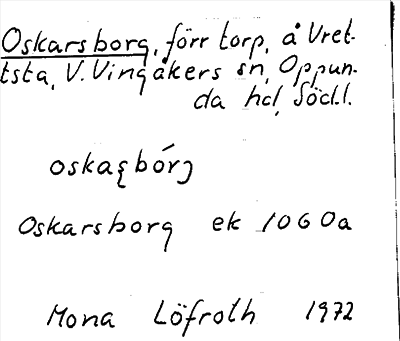 Oskarsborg, förr torp, å Vret-
tsta, V. Vingåkers sn, Oppun-
da hd, Södl.
oskaʂbórj
Oskarsborg ek 10G0a
Mona Löfroth 1972